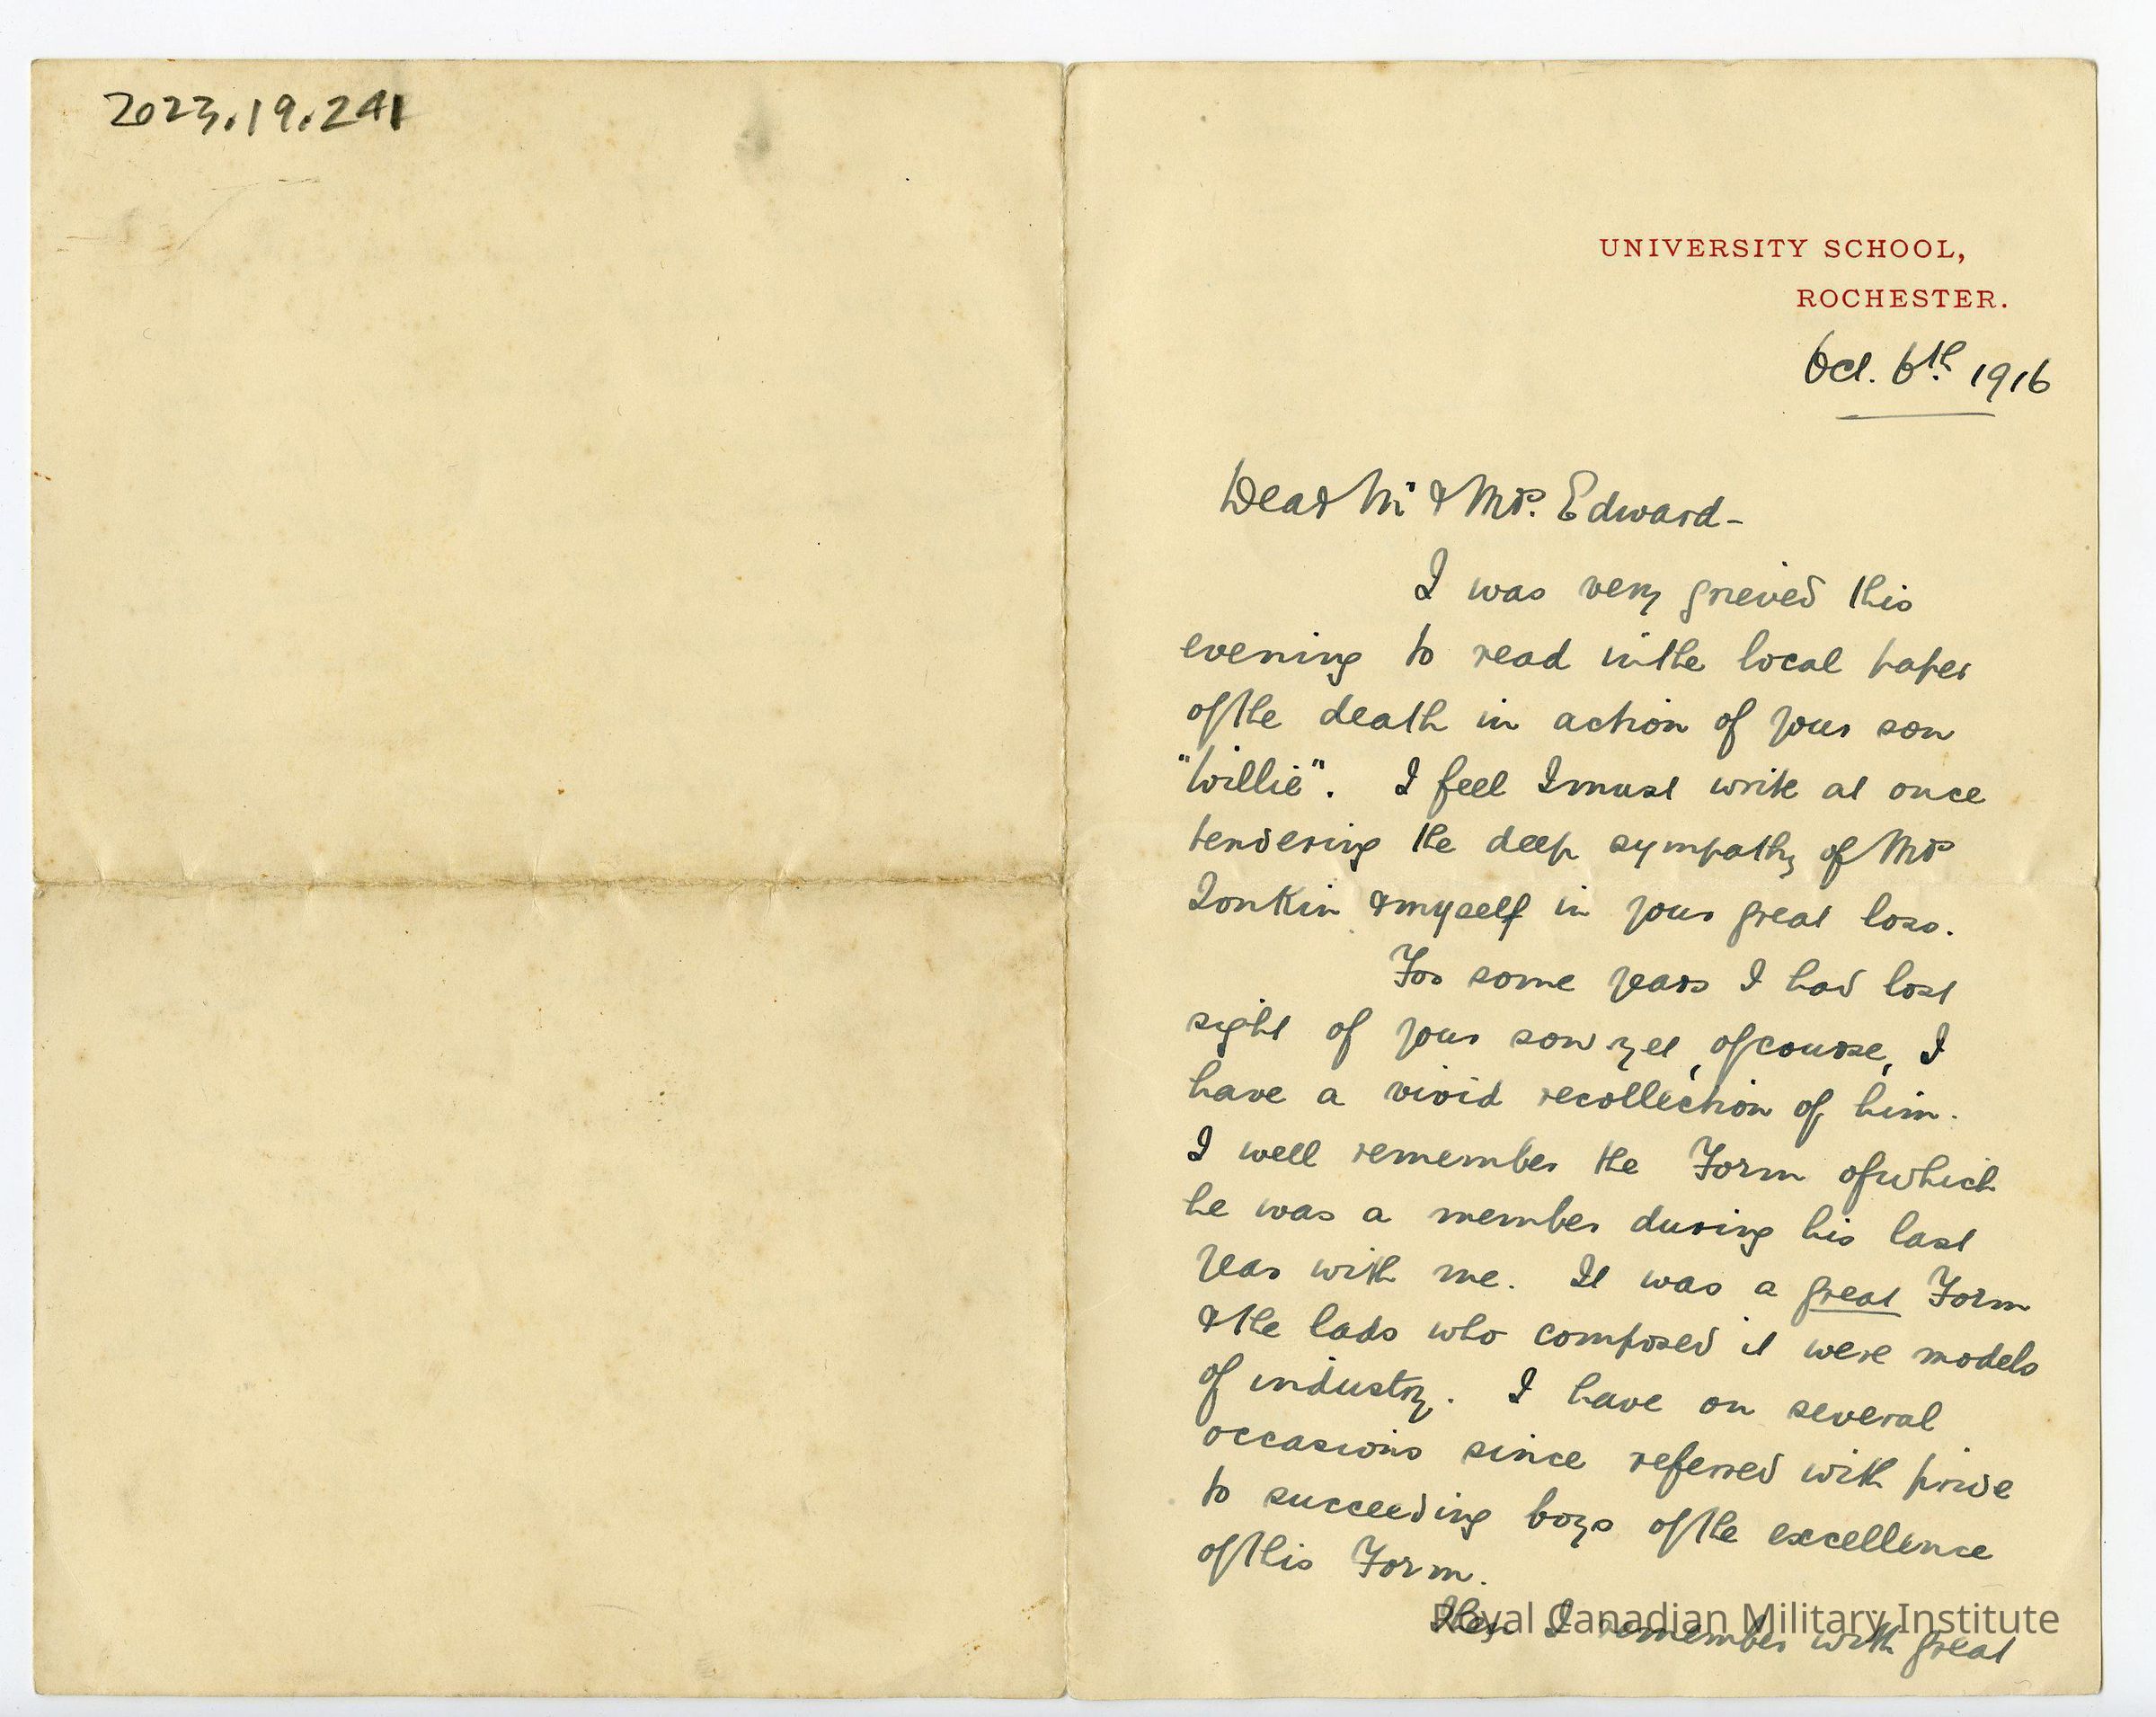 2023.19.241
UNIVERSITY SCHOOL,
ROCHESTER.
Oct. 6th. 1916
Dear Mr & Mrs. Edward-
I was very grieved this
evening to read in the local paper
of the death in action of your son
"Willie". I feel I must write at once
tendering the deep sympathy of Mrs
Tonkin & myself in your great loss.
For some years I had lost
sight of your son yet, of course, I
have a vivid recollection of him.
I well remember the Form of which
he was a member during his last
year with me. It was a great Form
& the lads who composed it were models
of industry. I have on several
occasions since referred with pride
to succeeding boys of the excellence
of this Form.
Then I remember with great
Royal Canadian Military Institute